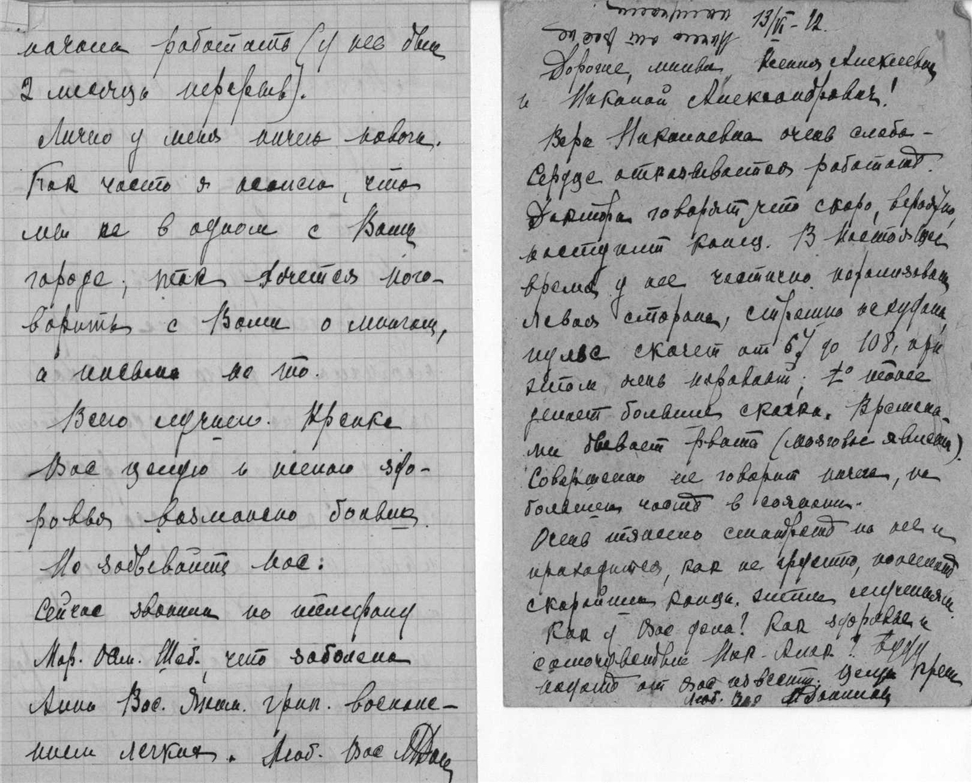 начала работать (у нее был
2 месяца перерыв).
Лично у меня ничего нового.
Так часто я жалею, что
мы не в одном с Вами
городе, так хочется пого-
ворить с Вами о многом,
а письма не то.
Всего лучшего. Крепко
Вас целую и желаю здо-
ровья возможно больше.
Не забывайте нас.
Сейчас звонили по телефону
Мар. Шаб., что заболела
Анна Вас. грип. воспале-
нием легких. Люб. Вас
13/VI - 42.
Дорогие, милые Ксения Алексеевна
и Николай Александрович!
Вера Николаевна очень слаба -
сердце отказывается работать.
Доктора говорят что скоро, вероятно,
наступит конец. В настоящее
время у нее частично парализована
левая сторона, страшно исхудала,
пульс скачет от до 108, при
этом очень неровный; t° тоже
делает большие скачки. Времена-
ми бывает рвота (мозговые явления).
Совершенно не говорит ничего, но
большей частью в сознании.
Очень тяжело смотреть на нее и
приходится, как не грустно, пожелать
скорейшего конца этим мучениям.
Как у Вас дела? Как здоровье и
самочувствие Ник. Алек.? Буду
ждать от Вас известий. Целую креп
Люб. Вас